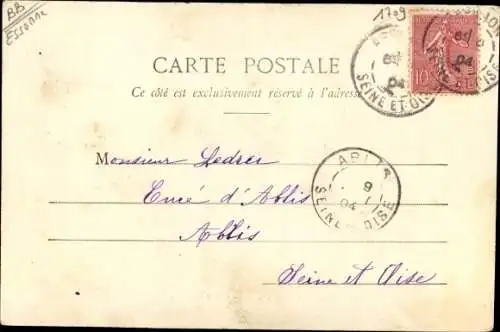 BB
Essonne
1709
CARTE POSTALE
Ce côté est exclusivement réservé à l'adresse
10
SEINE ET OISE
Monsieur Ledrer
Curé d'Ablis
Ablis
Seine et Oise
ABLIS
9
1
04
SEINE OISE